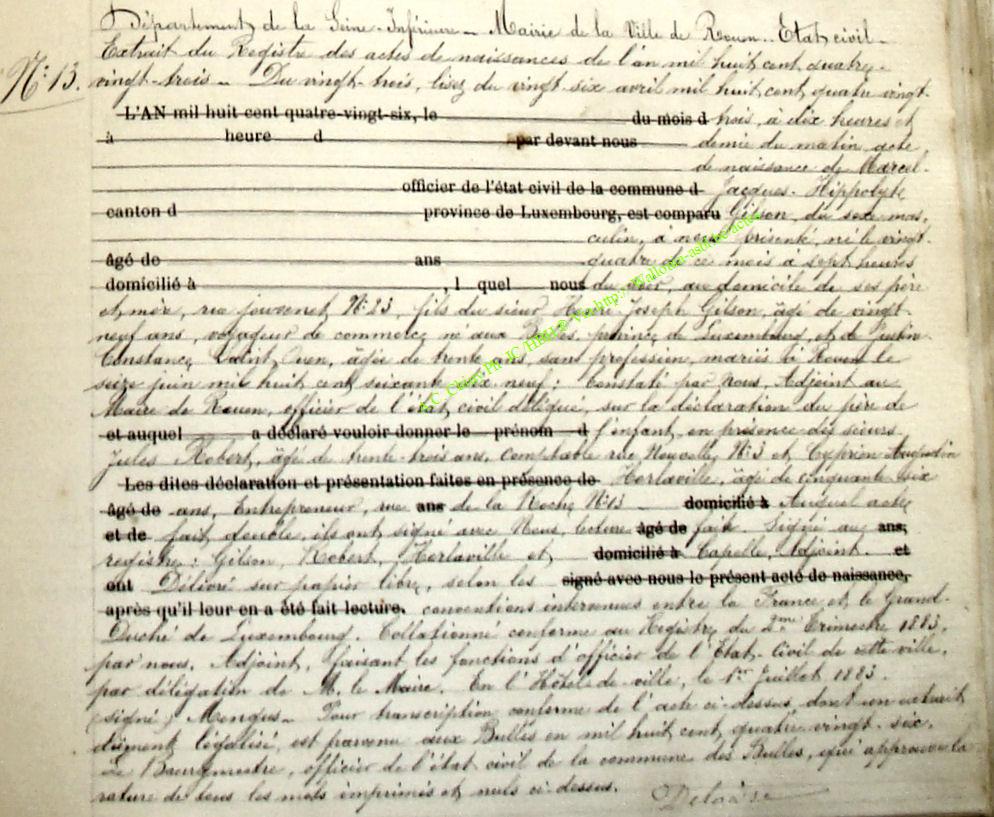 Département de la Seine-Inférieure - Mairie de la Ville de Rouen - Etat civil -
Nº 13. Extrait du Registre des actes de naissances de l'an mil huit cent quatre-
vingt-trois - Du vingt-trois, lisez du vingt-six avril mil huit cent quatre vingt-
L'AN mil huit cent quatre-vingt-six, le du mois d trois, à dix heures et
à heure d par devant nous demie du matin acte
de naissance de Marcel-
officier de l'état civil de la commune d Jacques-Hippolyte
canton d province de Luxembourg, est comparu Gilson, du sexe mas-
culin, à nous présenté, né le vingt-
âgé de ans quatre de ce mois à sept heures
domicilié à , l quel nous du soir, au domicile de ses père
et mère, rue Jouvenet, Nº 23, fils du sieur Joseph Gilson, âgé de vingt-
neuf ans, voyageur de commerce né aux Bulles, province de Luxembourg, et de
Constance Saint Ouen, âgée de trente ans, sans profession, mariés à Rouen le
seize juin mil huit cent soixante dix neuf : Constaté par Nous, Adjoint au
Maire de Rouen, officier de l'état civil délégué, sur la déclaration du père de
et auquel a déclaré vouloir donner le prénom d l'enfant en présence des sieurs
Jules Robert, âgé de trente-trois ans, comptable rue Nouvelle, Nº 3 et Cyprien Augustin
Les dites déclaration et présentation faites en présence de Herlaville, âgé de cinquante six
âgé de ans, Entrepreneur, rue ans de la Roche Nº 13 - domicilié à Auquel acte
et de fait double, ils ont signé avec Nous, lecture âgé de faite. Signé au ans,
registre : Gilson, Robert, Herlaville et domicilié à Capelle, Adjoint. et
ont Délivré sur papier libre, selon les signé avec nous le présent acté de naissance,
après qu'il leur en a été fait lecture. conventions intervenues entre la France et le Grand-
Duché de Luxembourg. Collationné conforme au Registre du 2me Trimestre 1883,
par nous, Adjoint, faisant les fonctions d'officier de l'Etat-Civil de cette ville,
par délégation de M. le Maire. En l'Hôtel-de-ville, le 1er Juillet 1883.
(signé) Mengus - Pour transcription conforme de l'acte ci-dessus, dont un extrait
dûment légalisé, est parvenu aux Bulles en mil huit cent quatre vingt-six.
Le Bourgmestre, officier de l'état civil de la commune des Bulles, qui approuve la
rature de tous les mots imprimés et nuls ci-dessus.